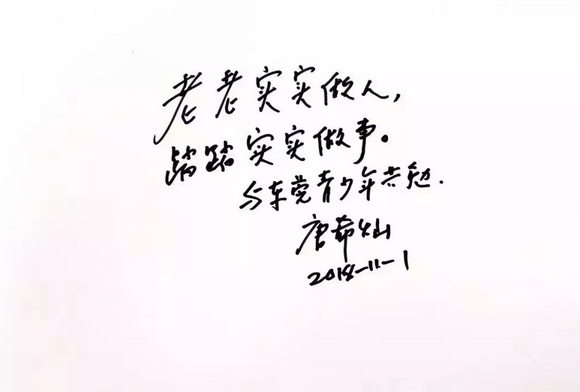 老老实实做人，
踏踏实实做事。
与东莞青少年共勉.
唐希灿
2018-11-1